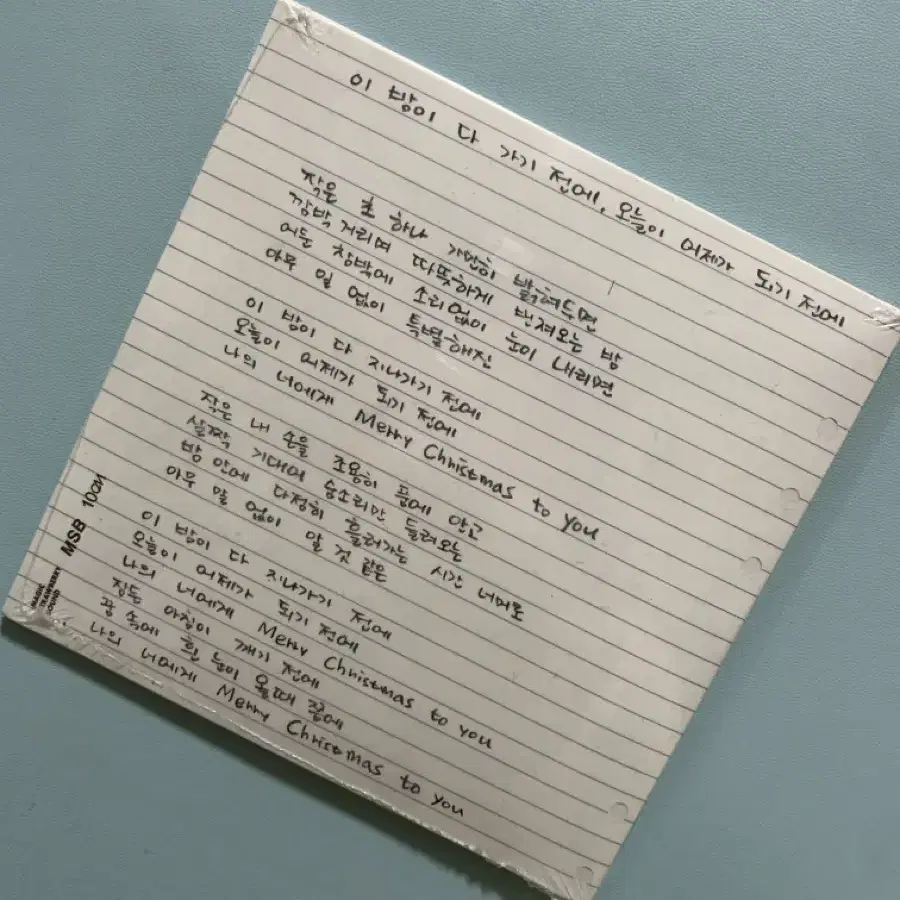 이 밤이 다 가기 전에, 오늘이 어제가 되기 전에
작은 초 하나 가만히 밝혀두면
깜박거리며 따뜻하게 번져오는 밤
어둔 창밖에 소리없이 눈이 내리면
아무 일 없이 특별해진
이 밤이 다 지나가기 전에
오늘이 어제가 되기 전에
나의 너에게 Merry Christmas to you
작은 내 손을 조용히 품에 안고
살짝 기대어 숨소리만 들려오는
밤 안에 다정히 흘러가는 시간 너머로
아무 말 없이 알 것 같은
이 밤이 다 지나가기 전에
오늘이 어제가 되기 전에
나의 너에게 Merry Christmas to you
잠든 아침이 깨기 전에
꿈 속에 흰 눈이 올때 쯤에
나의 너에게 Merry Christmas to you
MAGIC
STRAWBERRY
SOUND
MSB 10CM